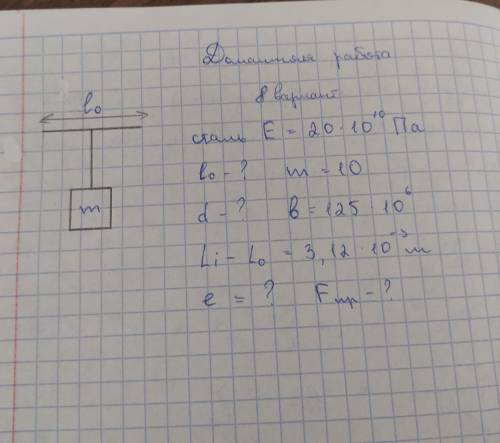 Домашняя работа
8 вариант
l₀
сталь E = 20 · 10¹⁰ Па
l₀ - ? m = 10
m
d - ? б = 125 · 10⁶
Li - L₀ = 3,12 · 10⁻³ m
e = ? Fупр - ?